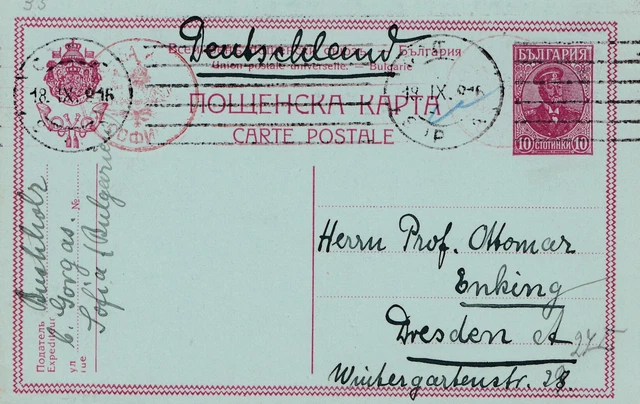 33
Deutschland
България
Union postale universelle. — Bulgarie
18 IX 916
18 IX 916
ПОЩЕНСКА КАРТА
CARTE POSTALE
БЪЛГАРИЯ
10 СТОТИНКИ 10
Податель
Expéditeur
ул
rue
№
Buchholz
b. Gorgas.
Sofia (Bulgarien
Herrn Prof. Ottomar
Enking
Dresden A
Wintergartenstr.